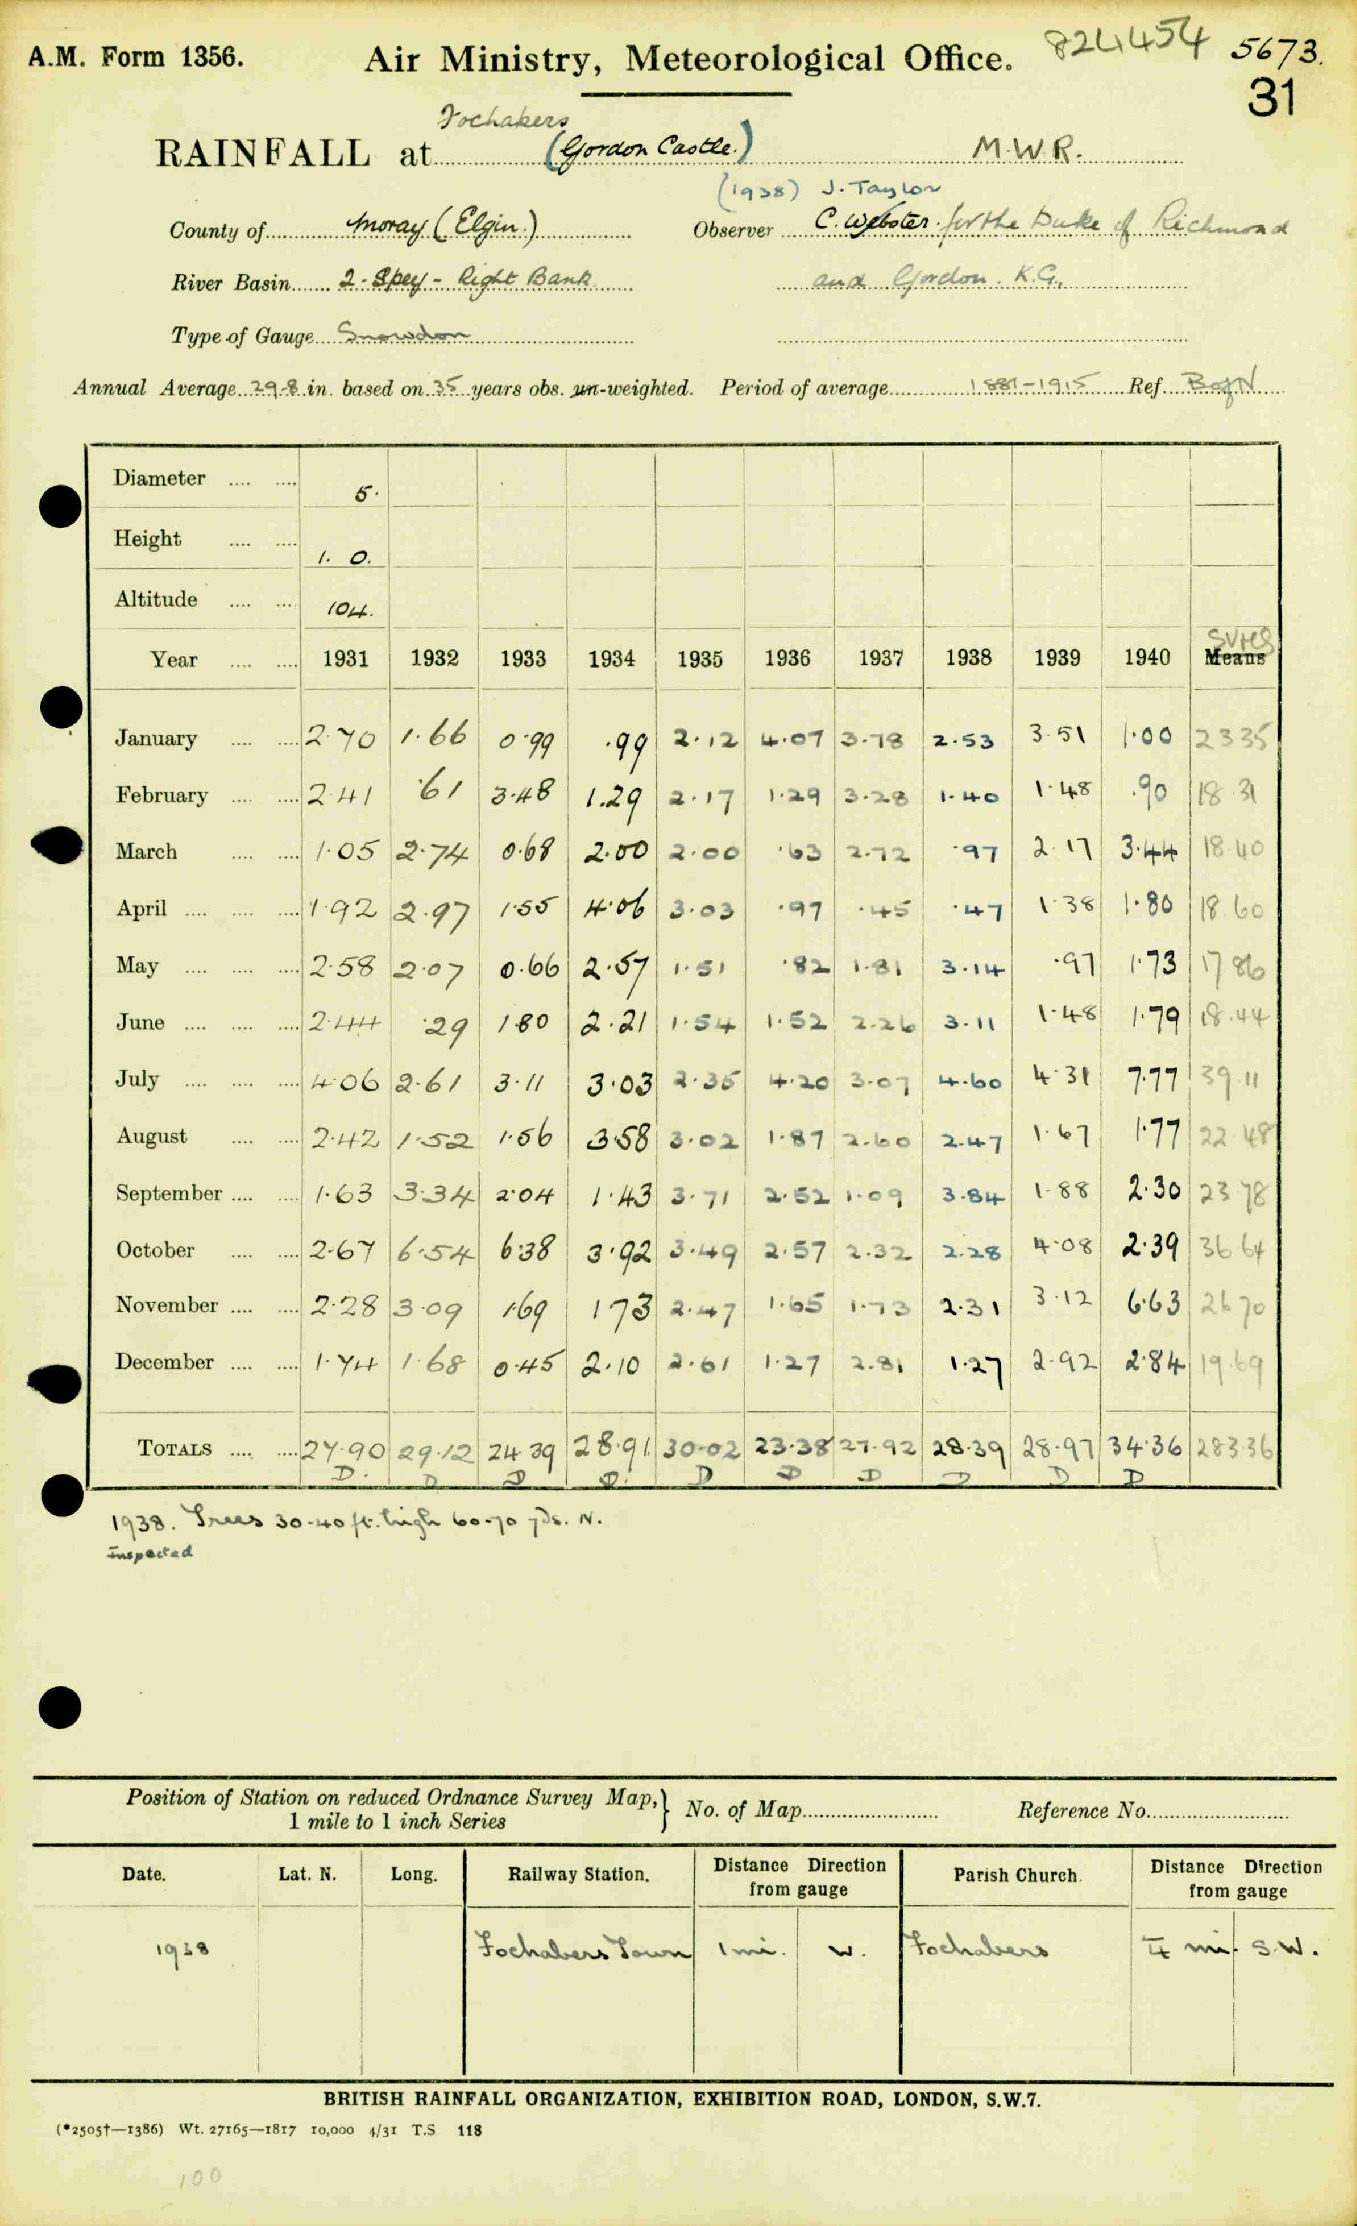 A.M. Form 1356.
Air Ministry, Meteorological Office.
824454
5673.
31
Fochabers
RAINFALL at (Gordon Castle.) M.W.R.
(1938) J. Taylor
County of Moray (Elgin.) Observer C. Webster for the Duke of Richmond
River Basin 2 - Spey - Right Bank and Gordon. K.G.
Type of Gauge Snowdon
Annual Average 29.8 in. based on 35 years obs. un-weighted. Period of average 1881-1915 Ref. B of N
Diameter .... .... 5.
Height .... .... 1. 0.
Altitude .... .... 104.
Year .... .... 1931 1932 1933 1934 1935 1936 1937 1938 1939 1940 Means
January .... .... 2.70 1.66 0.99 .99 2.12 4.07 3.78 2.53 3.51 1.00 23 35
February .... .... 2.41 .61 3.48 1.29 2.17 1.29 3.28 1.40 1.48 .90 18 31
March .... .... 1.05 2.74 0.68 2.00 2.00 .63 2.72 .97 2.17 3.44 18.40
April .... .... .... 1.92 2.97 1.55 4.06 3.03 .97 .45 .47 1.38 1.80 18.60
May .... .... .... 2.58 2.07 0.66 2.57 1.51 .82 1.81 3.14 .97 1.73 17 86
June .... .... .... 2.44 .29 1.80 2.21 1.54 1.52 2.26 3.11 1.48 1.79 18.44
July .... .... .... 4.06 2.61 3.11 3.03 2.35 4.20 3.07 4.60 4.31 7.77 39.11
August .... .... 2.42 1.52 1.56 3.58 3.02 1.87 2.60 2.47 1.67 1.77 22 48
September .... .... 1.63 3.34 2.04 1.43 3.71 2.52 1.09 3.84 1.88 2.30 23 78
October .... .... 2.67 6.54 6.38 3.92 3.49 2.57 2.32 2.28 4.08 2.39 36 64
November .... .... 2.28 3.09 1.69 1 73 2.47 1.65 1.73 2.31 3.12 6.63 26 70
December .... .... 1.74 1.68 0.45 2.10 2.61 1.27 2.81 1.27 2.92 2.84 19.69
TOTALS .... .... 27.90 29.12 24.39 28.91 30.02 23.38 27.92 28.39 28.97 34.36 283 36
D. D D D. D D D D D D
1938. Trees 30-40 ft. high 60-70 yds. N.
Inspected
Position of Station on reduced Ordnance Survey Map,} No. of Map Reference No.
1 mile to 1 inch Series
Date. Lat. N. Long. Railway Station. Distance Direction from gauge Parish Church. Distance Direction from gauge
1938 Fochabers Town 1 mi. W. Fochabers mi. S.W.
BRITISH RAINFALL ORGANIZATION, EXHIBITION ROAD, LONDON, S.W.7.
(*2505†—1386) Wt. 27165—1817 10,000 4/31 T.S 118
100